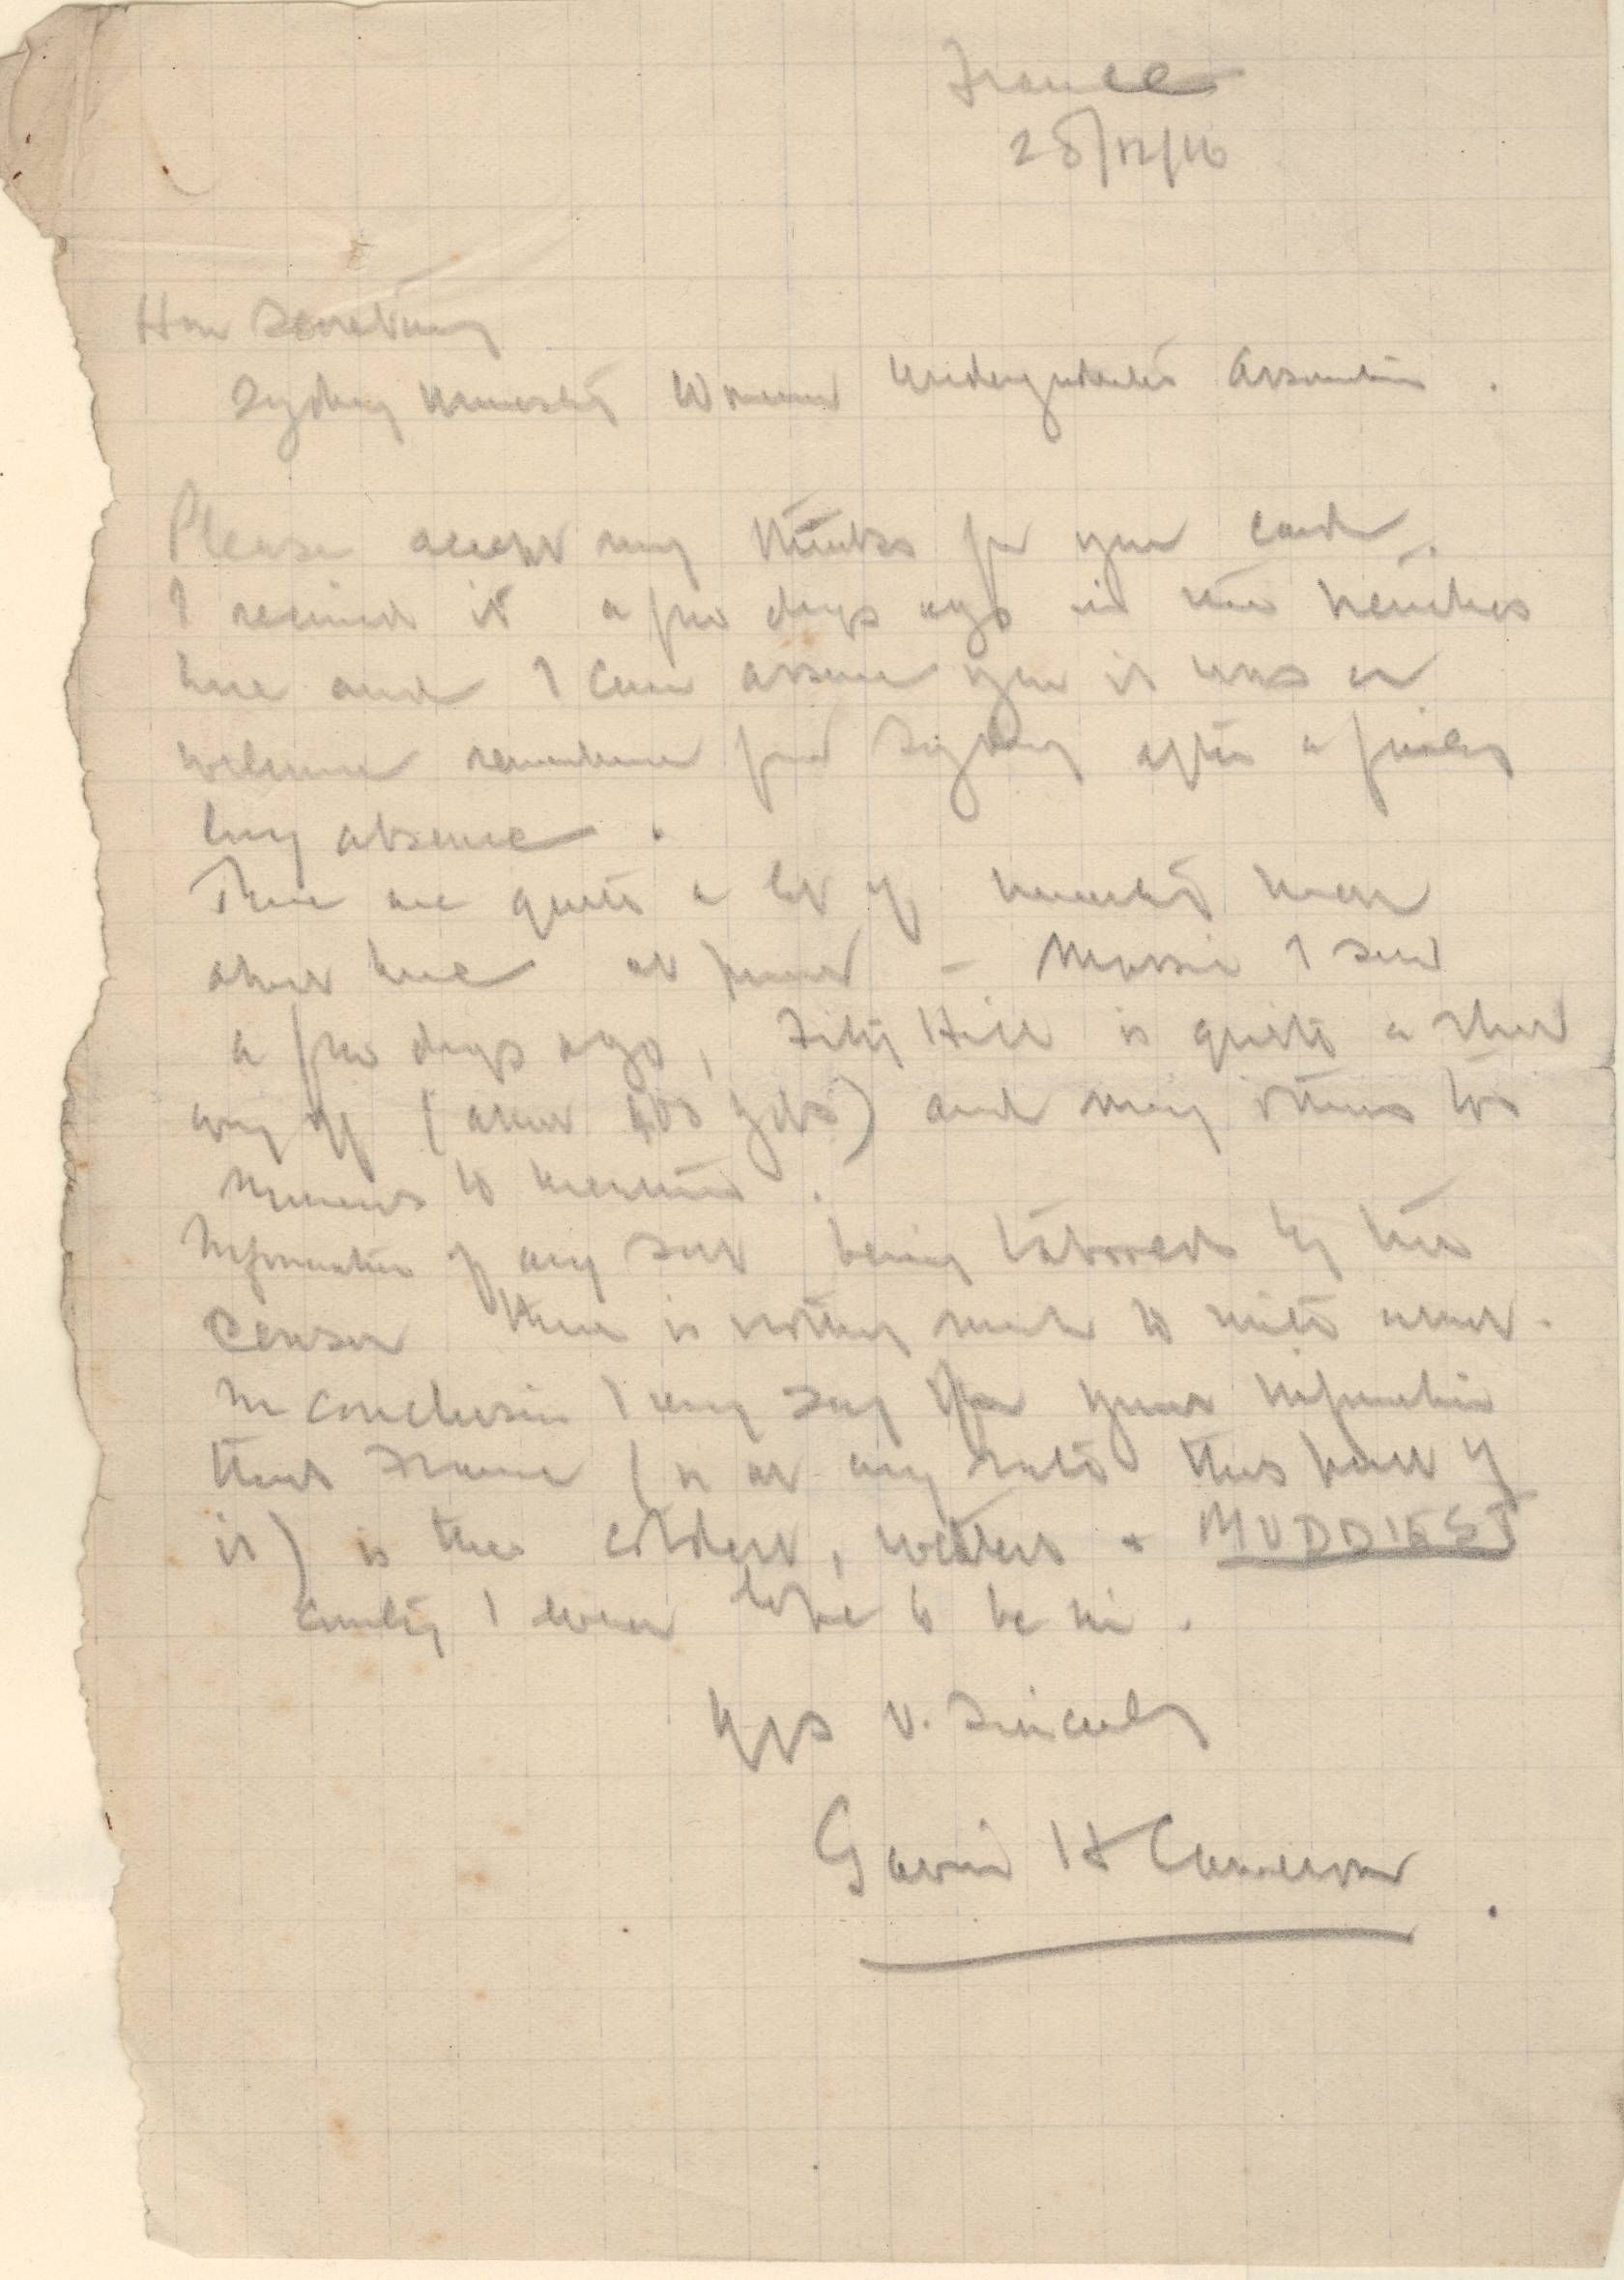 France
28/12/16
Hon Secretary
Sydney University Women Undergraduates Association.
Please accept my thanks for your card.
I received it a few days ago in the trenches
here and I can assure you it was a
welcome remembrance from Sydney after a fairly
long absence.
There are quite a lot of University men
about here at present - Massie I saw
a few days ago, Fitz Hill is quite a short
way off (about 400 yds) and many others too
numerous to mention.
Information of any sort being tabooed by the
Censor there is nothing much to write about.
In conclusion I may say for your information
that France (or at any rate this part of
it) is the coldest, wettest & MUDDIEST
country I ever hope to be in.
Yrs v. Sincerely
Gavin H Cameron